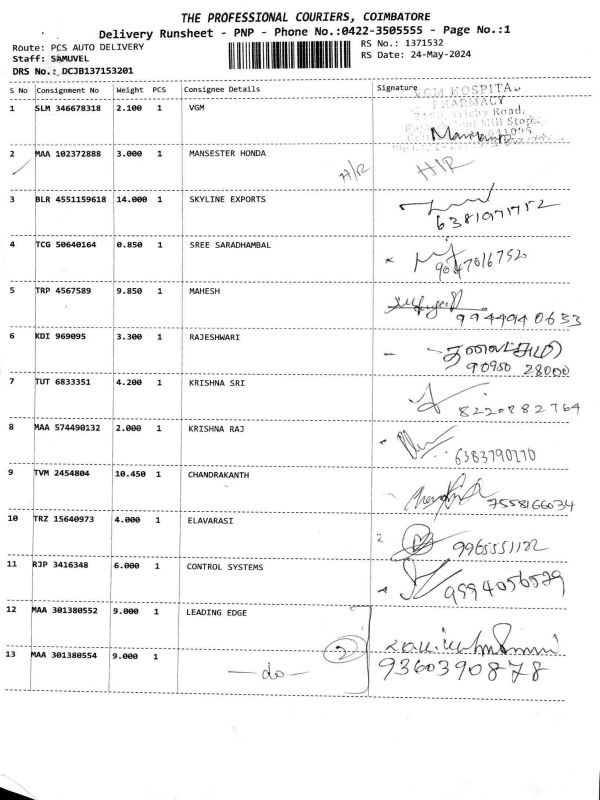 THE PROFESSIONAL COURIERS, COIMBATORE
Delivery Runsheet - PNP - Phone No.:0422-3505555 - Page No.:1
Route: PCS AUTO DELIVERY
RS No.: 1371532
Staff: SAMUVEL
RS Date: 24-May-2024
DRS No.: DCJB137153201
S No Consignment No Weight PCS Consignee Details Signature
VGM HOSPITAL
PHARMACY
Trichy Road,
1 SLM 346678318 2.100 1 VGM
2 MAA 102372888 3.000 1 MANSESTER HONDA H/R H/R
3 BLR 4551159618 14.000 1 SKYLINE EXPORTS
6381971752
4 TCG 50640164 0.850 1 SREE SARADHAMBAL
9047016752
5 TRP 4567589 9.850 1 MAHESH
9944940633
6 KDI 969095 3.300 1 RAJESHWARI
90950 28000
7 TUT 6833351 4.200 1 KRISHNA SRI
8220882764
8 MAA 574490132 2.000 1 KRISHNA RAJ
6383790270
9 TVM 2454804 10.450 1 CHANDRAKANTH
7558166034
10 TRZ 15640973 4.000 1 ELAVARASI
9965551122
11 RJP 3416348 6.000 1 CONTROL SYSTEMS
9994056529
12 MAA 301380552 9.000 1 LEADING EDGE
2
13 MAA 301380554 9.000 1 -do- 9360390878